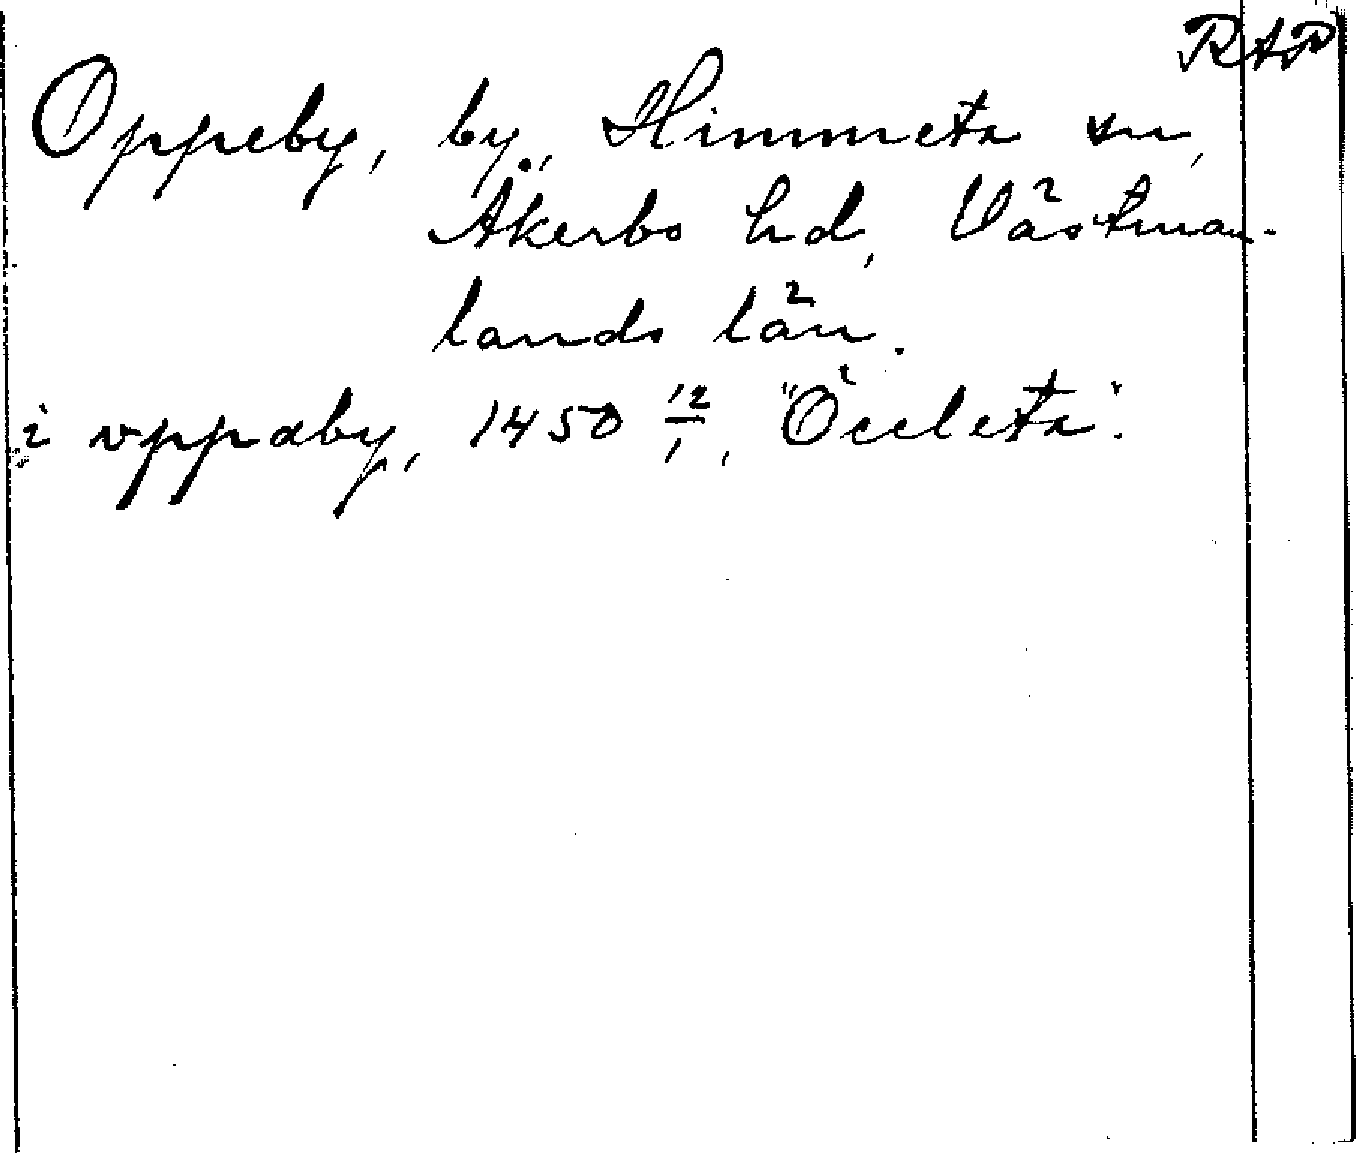 RAP
Oppeby, by, Himmeta sn,
Åkerbo hd, Västman-
lands län.
i vppaby, 1450 12/1, "Öccleta".